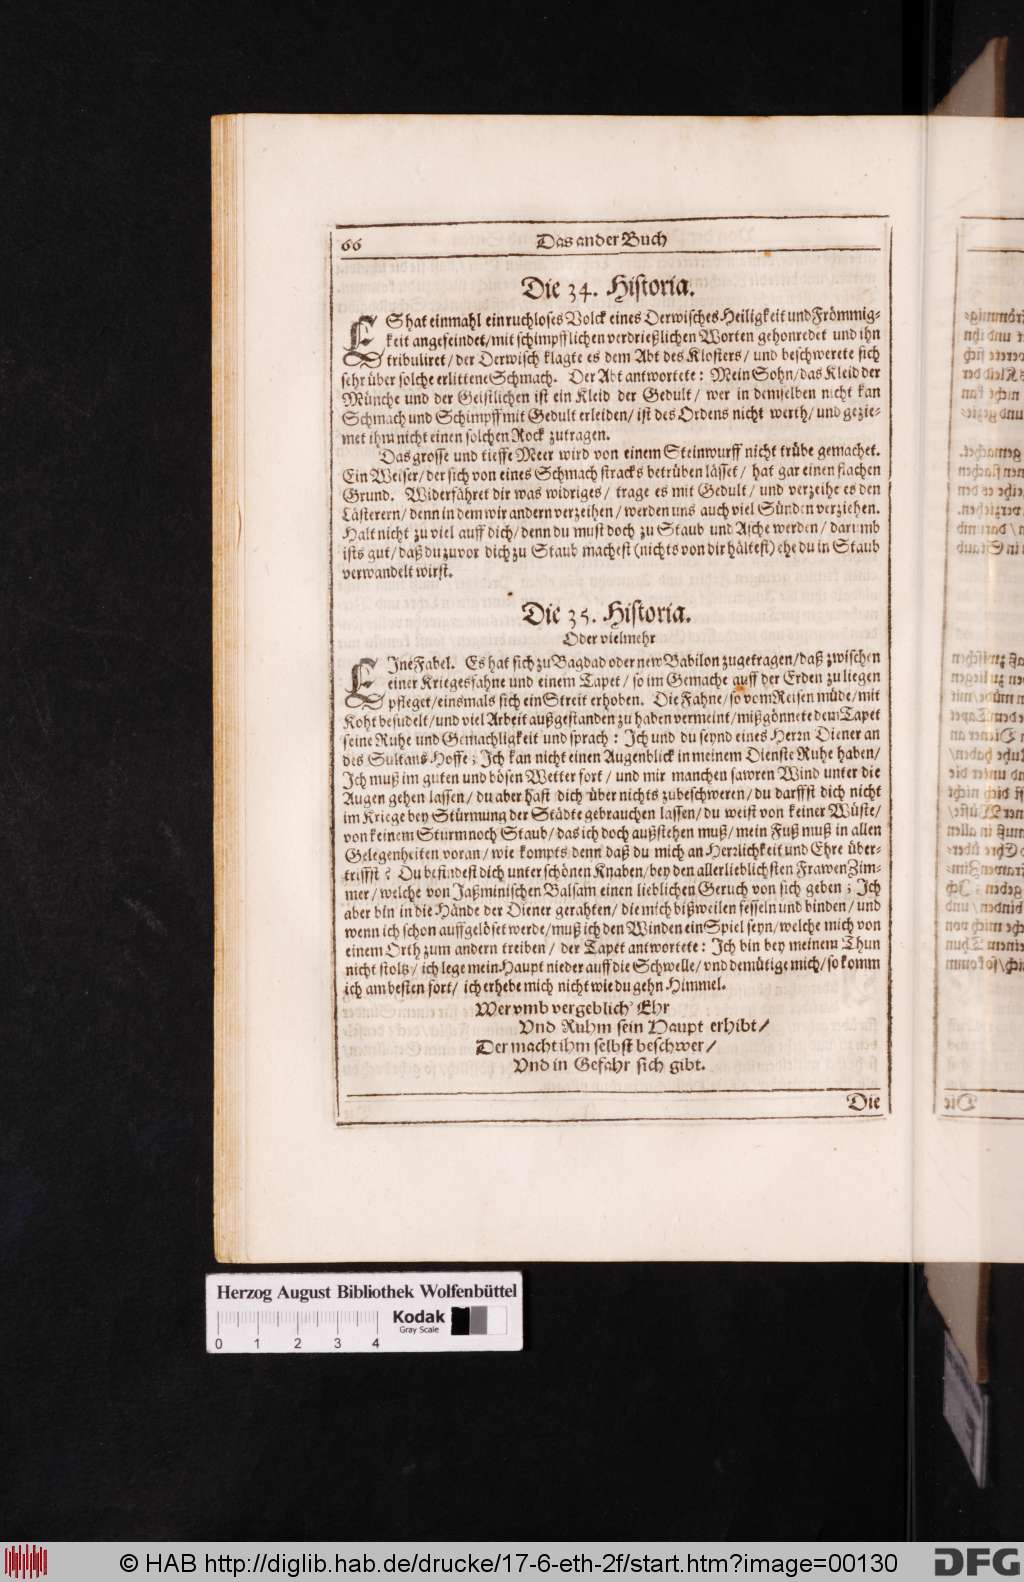 66 Das ander Buch
Die 34. Historia.
ES hat einmahl ein ruchloses Volck eines Derwisches Heiligkeit und Frömmig-
keit angefeindet/ mit schimpfflichen verdrießlichen Worten gehonredet und ihn
tribuliret/ der Derwisch klagte es dem Abt des Klosters/ und beschwerete sich
sehr über solche erlittene Schmach. Der Abt antwortete: Mein Sohn/ das Kleid der
Münche und der Geistlichen ist ein Kleid der Gedult/ wer in demselben nicht kan
Schmach und Schimpff mit Gedult erleiden/ ist des Ordens nicht werth/ und gezie-
met ihm nicht einen solchen Rock zutragen.
Das grosse und tieffe Meer wird von einem Steinwurff nicht trübe gemachet.
Ein Weiser/ der sich von eines Schmach stracks betrüben lässet/ hat gar einen flachen
Grund. Widerfähret dir was widriges/ trage es mit Gedult/ und verzeihe es den
Lästerern/ denn in dem wir andern verzeihen/ werden uns auch viel Sünden verziehen.
Halt nicht zu viel auff dich/ denn du must doch zu Staub und Asche werden/ darumb
ists gut/ daß du zuvor dich zu Staub machest (nichts von dir hältest) ehe du in Staub
verwandelt wirst.
Die 35. Historia.
Oder vielmehr
EIne Fabel. Es hat sich zu Bagdad oder new Babilon zugetragen/ daß zwischen
einer Kriegesfahne und einem Tapet/ so im Gemache auff der Erden zu liegen
pfleget/ einsmals sich ein Streit erhoben. Die Fahne/ so vom Reisen müde/ mit
Koht besudelt/ und viel Arbeit außgestanden zu haben vermeint/ mißgönnete dem Tapet
seine Ruhe und Gemachligkeit und sprach: Ich und du seynd eines Herrn Diener an
des Sultans Hoffe; Ich kan nicht einen Augenblick in meinem Dienste Ruhe haben/
Ich muß im guten und bösen Wetter fort/ und mir manchen sawren Wind unter die
Augen gehen lassen/ du aber hast dich über nichts zubeschweren/ du darffst dich nicht
im Kriege bey Stürmung der Städte gebrauchen lassen/ du weist von keiner Wüste/
von keinem Sturm noch Staub/ das ich doch außstehen muß/ mein Fuß muß in allen
Gelegenheiten voran/ wie kompts denn daß du mich an Herrlichkeit und Ehre über-
triffst? Du befindest dich unter schönen Knaben/ bey den allerlieblichsten Frawen Zim-
mer/ welche von Jaßminischen Balsam einen lieblichen Geruch von sich geben; Ich
aber bin in die Hände der Diener gerahten/ die mich bißweilen fesseln und binden/ und
wenn ich schon auffgelöset werde/ muß ich den Winden ein Spiel seyn/ welche mich von
einem Orth zum andern treiben/ der Tapet antwortete: Ich bin bey meinem Thun
nicht stoltz/ ich lege mein Haupt nieder auff die Schwelle/ vnd demütige mich/ so komm
ich am besten fort/ ich erhebe mich nicht wie du gehn Himmel.
Wer vmb vergeblich' Ehr
Vnd Ruhm sein Haupt erhibt/
Der macht ihm selbst beschwer/
Vnd in Gefahr sich gibt.
Die
Herzog August Bibliothek Wolfenbüttel
Kodak
Gray Scale
0 1 2 3 4
© HAB http://diglib.hab.de/drucke/17-6-eth-2f/start.htm?image=00130
DFG